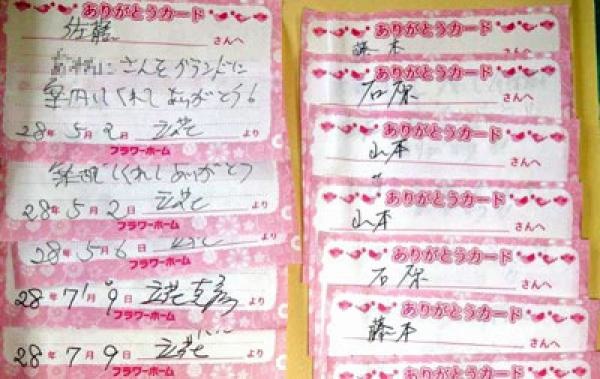 ありがとうカード
佐藤 さんへ
さんをグランドに
案内してくれてありがとう!
28年 5月 2日 立花 より
フラワーホーム
案内してくれてありがとう
28年 5月 2日 立花 より
フラワーホーム
28年 5月 6日 立花 より
28 7 9 立花 より
フラワーホーム
28年 7月 9日 立花 より
フラワーホーム
ありがとうカード
藤本 さんへ
ありがとうカード
石原 さんへ
ありがとうカード
山本 さんへ
ありがとうカード
山本 さんへ
ありがとうカード
石原 さんへ
ありがとうカード
藤本 さんへ
ありがとうカード